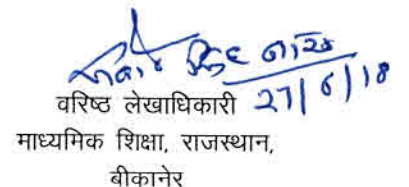 27/6/18
वरिष्ठ लेखाधिकारी
माध्यमिक शिक्षा, राजस्थान,
बीकानेर